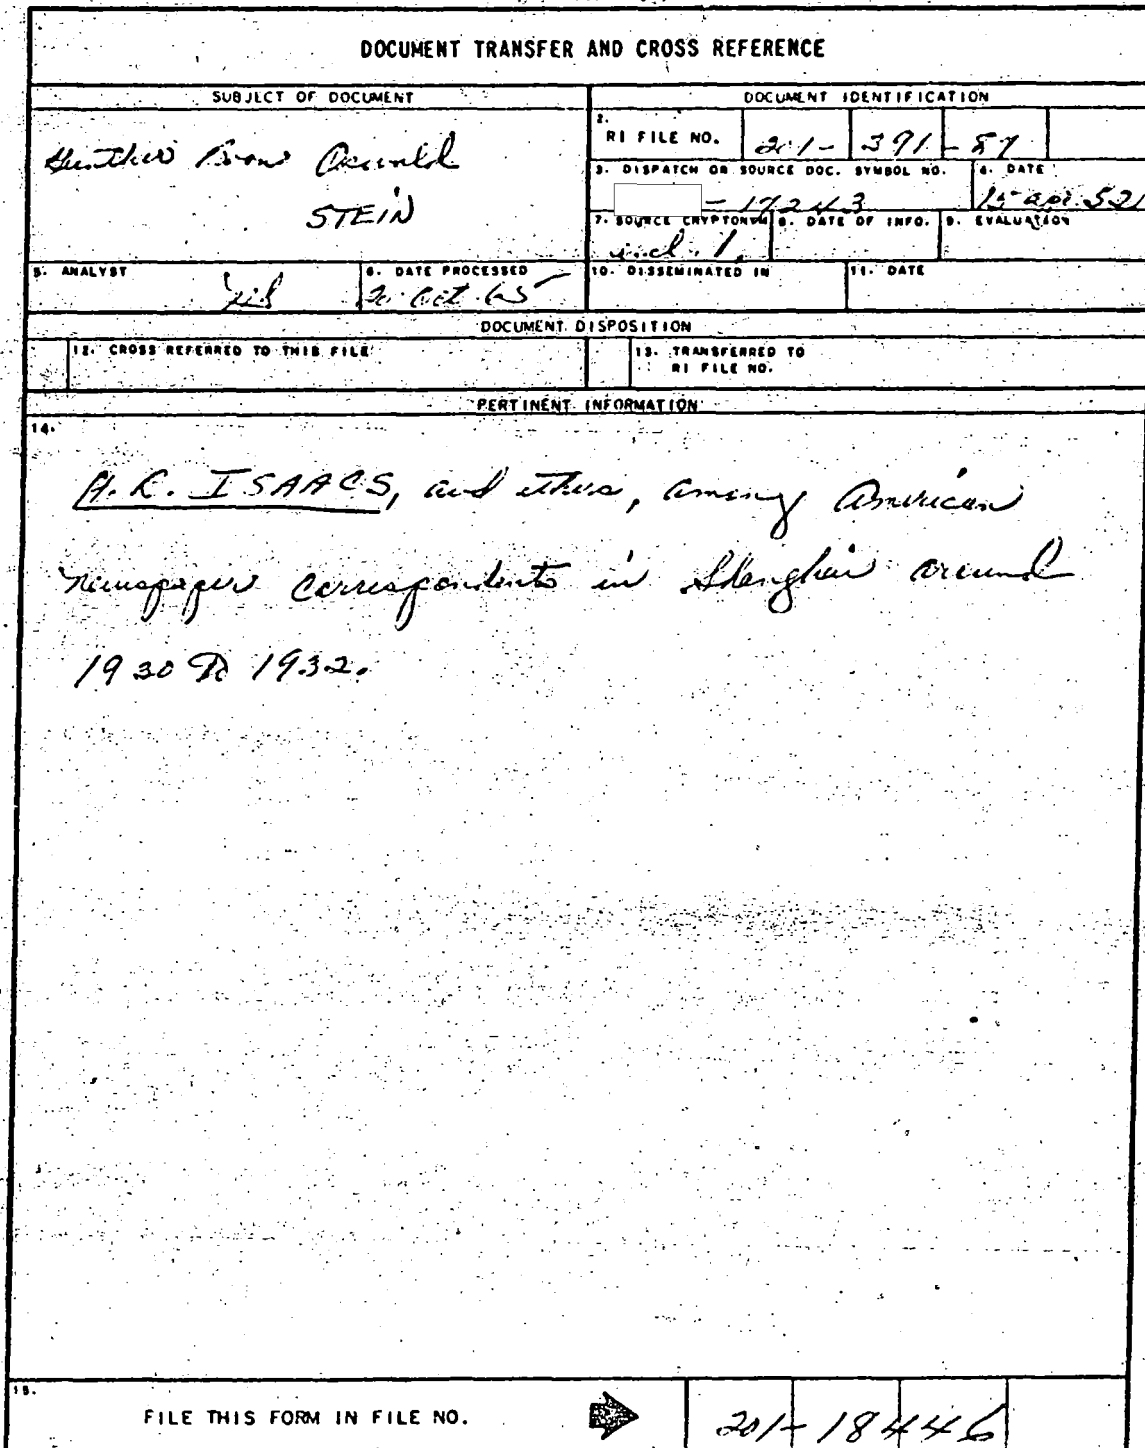 DOCUMENT TRANSFER AND CROSS REFERENCE
SUBJECT OF DOCUMENT
DOCUMENT IDENTIFICATION
STEIN
2. RI FILE NO. 201- 391 - 87
3. DISPATCH OR SOURCE DOC. SYMBOL NO. 4. DATE
- 17243 15 Apr 52
7. SOURCE CRYPTONYM 8. DATE OF INFO. 9. EVALUATION
incl. 1.
5. ANALYST 6. DATE PROCESSED 10. DISSEMINATED IN 11. DATE
20 Oct 65
DOCUMENT DISPOSITION
12. CROSS REFERRED TO THIS FILE 13. TRANSFERRED TO
RI FILE NO.
PERTINENT INFORMATION
14.
H.R. ISAACS, and others, among American
newspaper correspondents in Shanghai around
1930 to 1932.
15.
FILE THIS FORM IN FILE NO. 201-18446